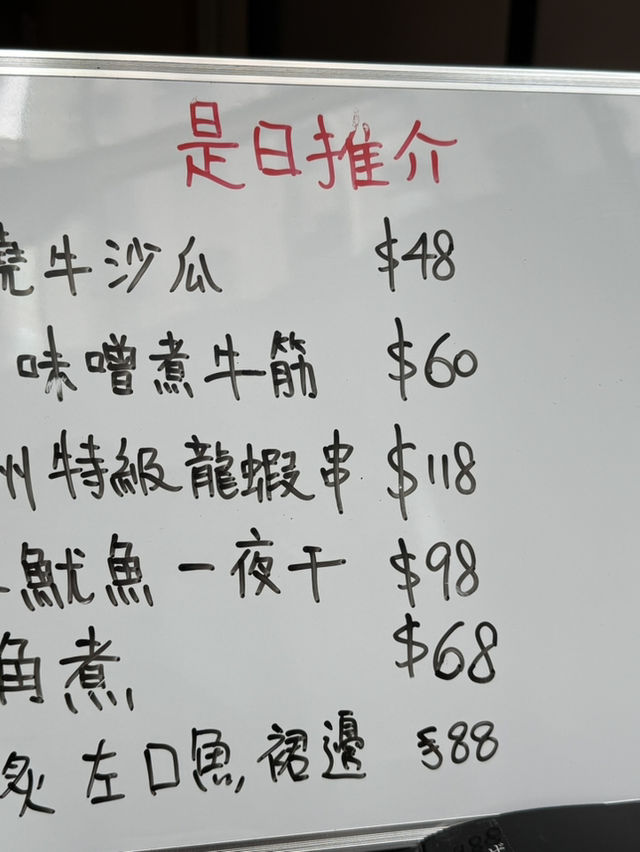 是日推介
燒牛沙瓜 $48
味噌煮牛筋 $60
州特級龍蝦串 $118
魷魚一夜干 $98
角煮 $68
炙左口魚裙邊 $88